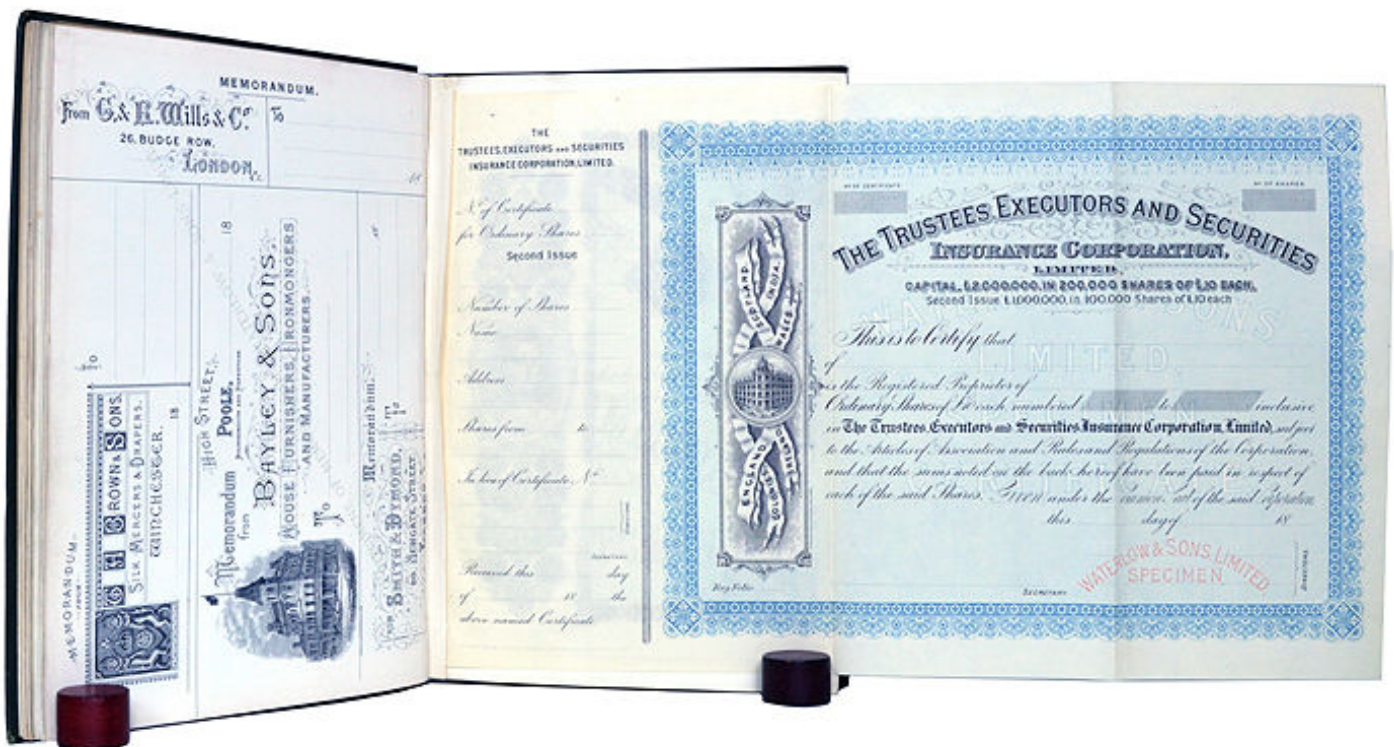 MEMORANDUM.
From G. & R. Wills & Co.
To
26, BUDGE ROW,
LONDON,
18
MEMORANDUM
FROM
To
ROWN & SONS.
SILK MERCERS & DRAPERS.
WINCHESTER.
18
HIGH STREET,
POOLE,
18
Memorandum
from
BAYLEY & SONS.
HOUSE FURNISHERS, IRONMONGERS
AND MANUFACTURERS.
To
Memorandum.
FROM SMITH & DYMOND,
To
THE
TRUSTEES, EXECUTORS AND SECURITIES
INSURANCE CORPORATION, LIMITED.
No. of Certificate
for Ordinary Shares
Second Issue
Number of Shares
Name
Address
Shares from to
In lieu of Certificate No.
SECRETARY
Received this day
of 18 the
above named Certificate
No OF CERTIFICATE
No OF SHARES
THE TRUSTEES EXECUTORS AND SECURITIES
INSURANCE CORPORATION,
LIMITED,
CAPITAL, £2,000,000, IN 200,000 SHARES OF £10 EACH,
Second Issue £1,000,000, in 100,000 Shares of £10 each
SCOTLAND
INDIA
WALES
ENGLAND
This is to Certify that
of
is the Registered Proprietor of
Ordinary Shares of £10 each numbered to inclusive
in The Trustees, Executors and Securities Insurance Corporation, Limited, subject
to the Articles of Association and Rules and Regulations of the Corporation,
and that the sums noted on the back hereof have been paid in respect of
each of the said Shares. Given under the Common Seal of the said Corporation
this day of 18
WATERLOW & SONS LIMITED
SPECIMEN
Reg. Folio
SECRETARY
DIRECTORS